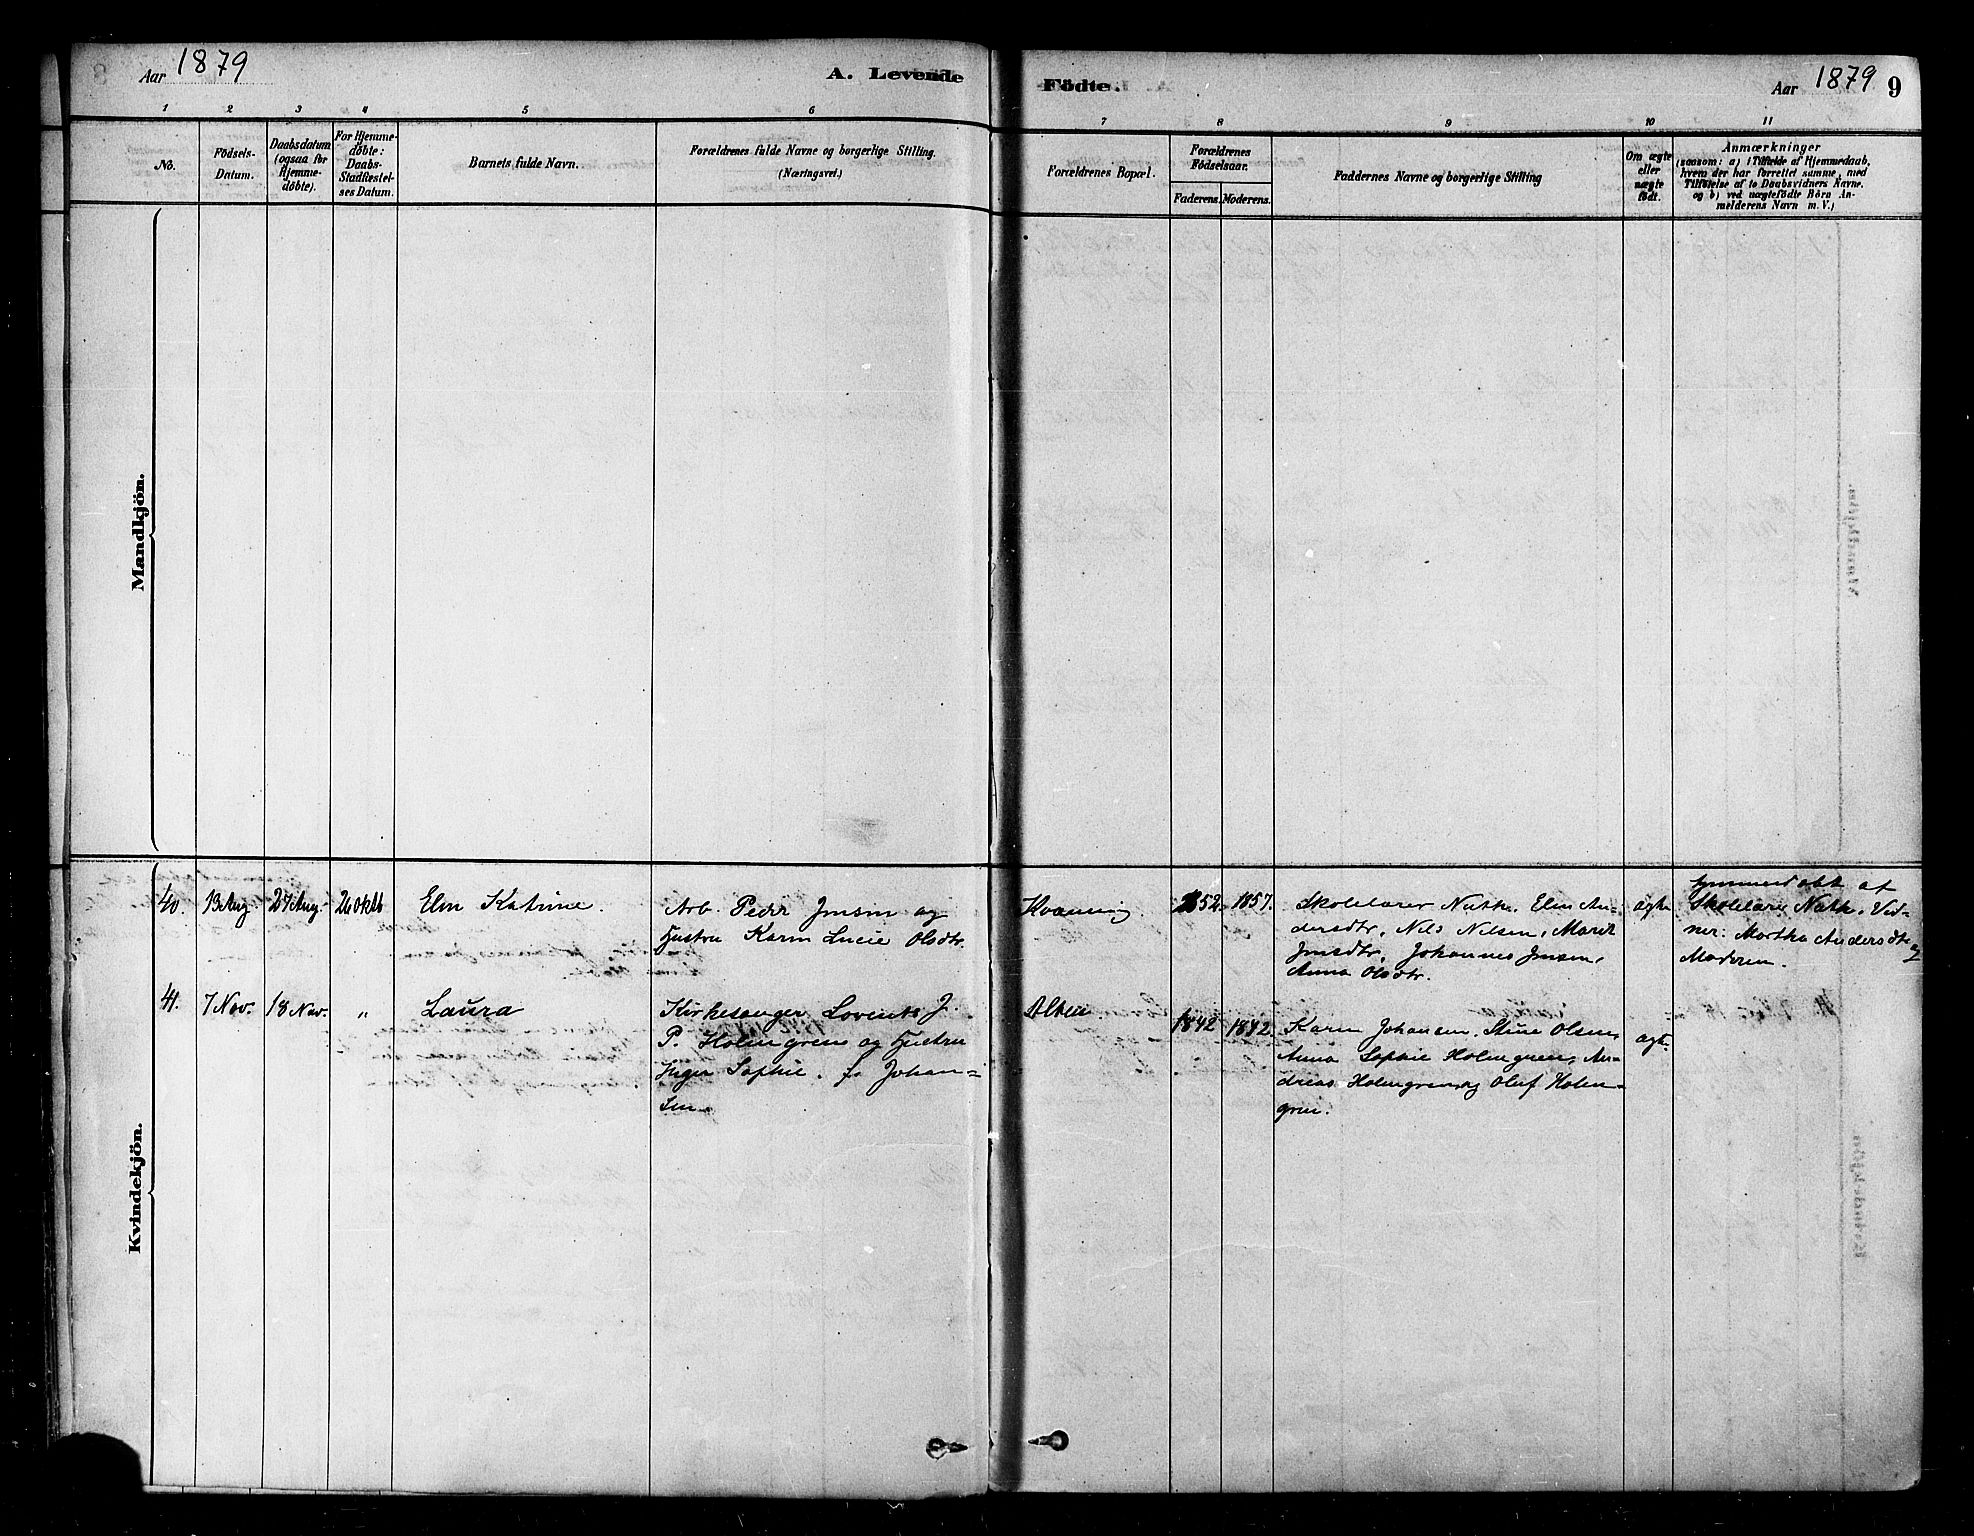 Aar 1879
A. Levende
Födte.
Aar 1879
9
1 2 3 4 5 6 7 8 9 10 11
No.
Födsels-
Datum.
Daabsdatum
(ogsaa for
Hjemme-
döbte).
For Hjemme-
döbte:
Daabs-
Stadfæstel-
ses Datum.
Barnets fulde Navn.
Forældrenes fulde Navne og borgerlige Stilling.
(Næringsvei.)
Forældrenes Bopæl.
Forældrenes
Födselsaar.
Faderens.
Moderens.
Faddernes Navne og borgerlige Stilling
Om ægte
eller
uægte
födt.
Anmærkninger
(saasom: a) i Tilfælde af Hjemmedaab,
hvem der har forrettet samme, med
Tilföielse af to Daabsvidners Navne,
og b) ved uægtefödte Börn An-
melderens Navn m. V.)
Mandkjön.
Kvindekjön.
40. 13 Aug. 27 Aug. 26 Oktb
Elen Katrine.
Arb. Peder Jensen og
Hustru Karen Lucie Olsdtr.
1852. 1857.
Skolelærer Nath. Elen An-
dersdtr, Nils Nilsen, Maret
Jensdtr, Johannes Jensen,
Anna Olsdtr.
ægte
Hjemmedøbt af
Skolelærer Nath. Vid-
ner: Martha Andersdtr og
Moderen.
41. 7 Nov. 18 Nov. "
Laura
Kirkesanger Lorents J.
P. Holmgren og Hustru
Inger Sophie f. Johan-
sen.
Alten
1842 1842.
Karen Johansen, Stine Olsen,
Anna Sophie Holmgren, An-
dreas Holmgren og Oluf Holm-
gren.
ægte.